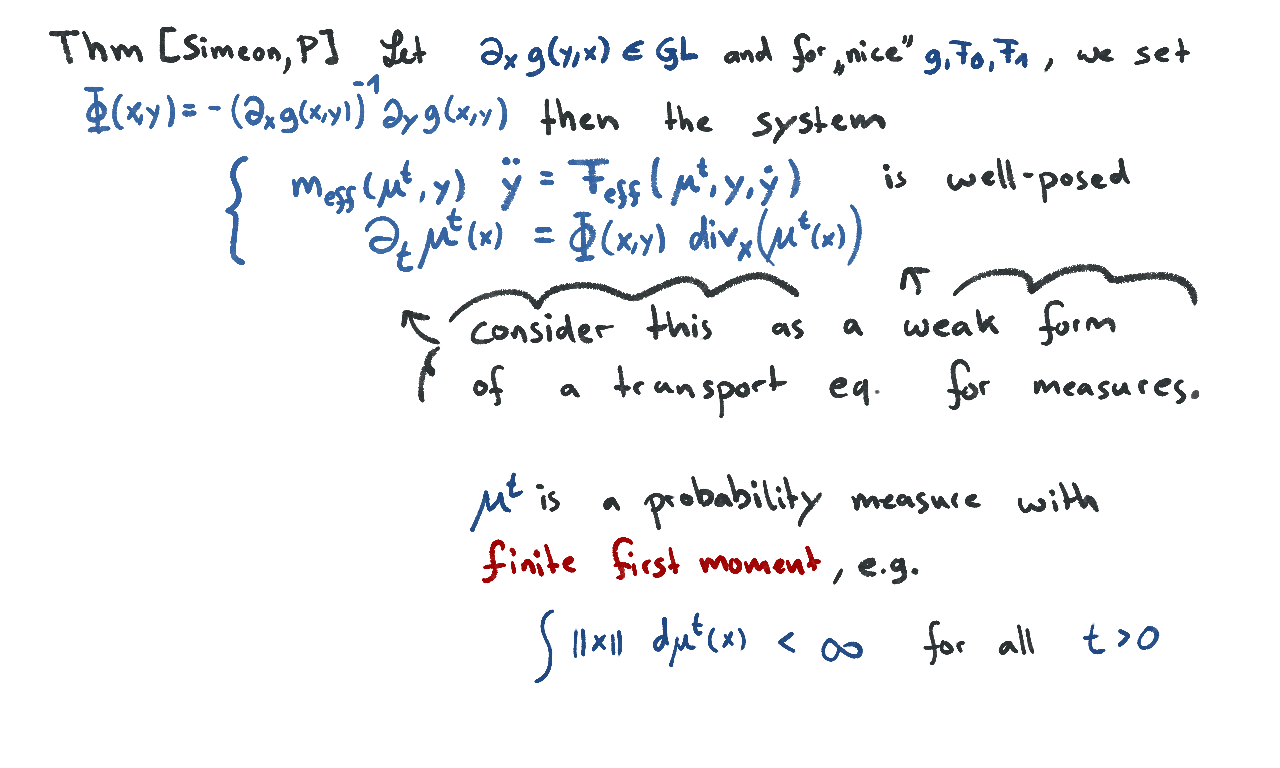 Thm [Simeon, P] Let ∂ₓ g(y,x) ∈ GL and for „nice" g, F₀, F₁, we set
Φ(x,y) = -(∂ₓg(x,y))⁻¹ ∂ᵧ g(x,y) then the system
m_eff(μᵗ, y) ÿ = F_eff(μᵗ, y, ẏ) is well-posed
∂ₜ μᵗ(x) = Φ(x,y) divₓ(μᵗ(x))
consider this as a weak form
of a transport eq. for measures.
μᵗ is a probability measure with
finite first moment, e.g.
∫ ||x|| dμᵗ(x) < ∞ for all t > 0